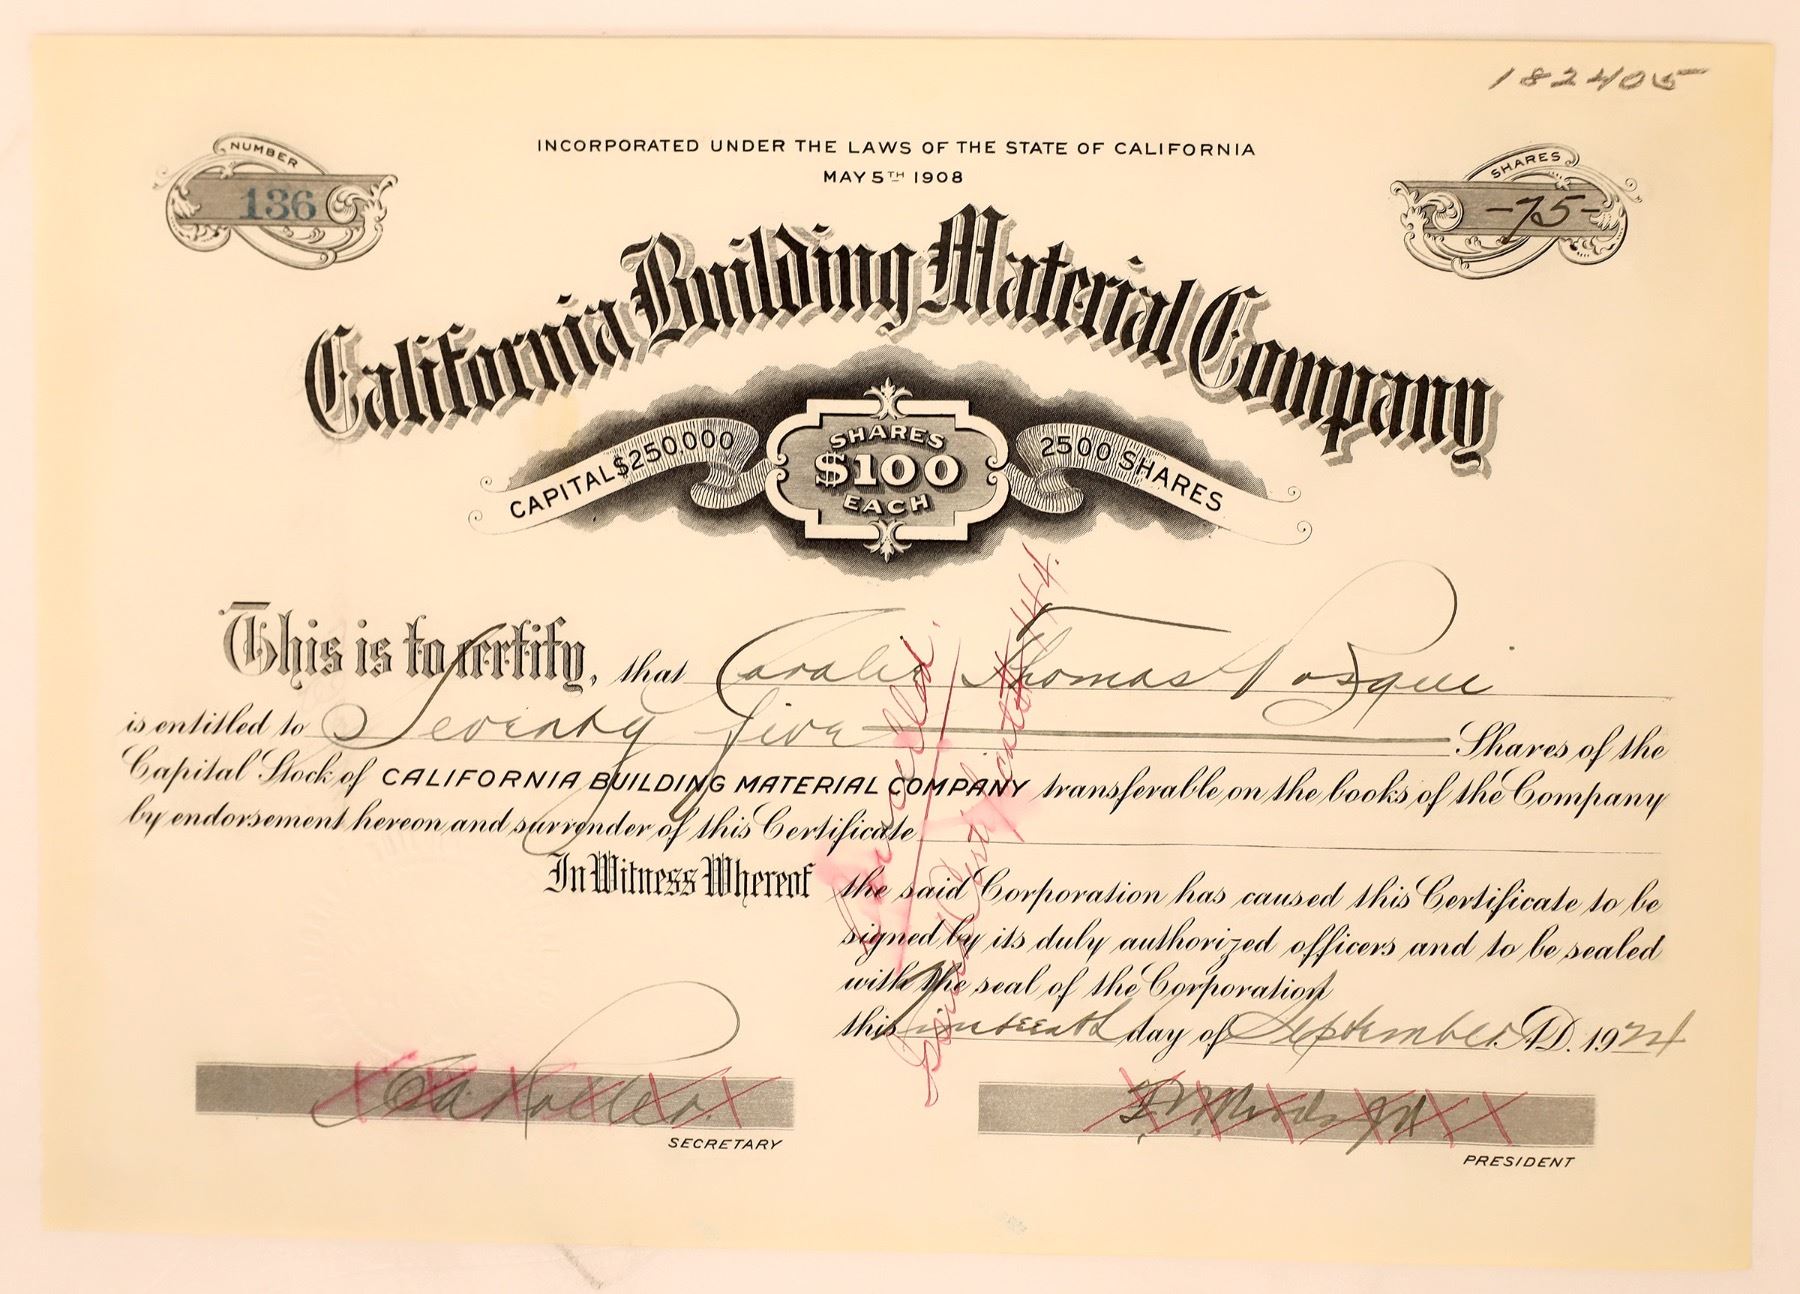 182405
INCORPORATED UNDER THE LAWS OF THE STATE OF CALIFORNIA
MAY 5TH 1908
NUMBER
136
SHARES
-75-
California Building Material Company
CAPITAL $250.000
SHARES
$100
EACH
2500 SHARES
This is to certify, that Thomas
is entitled to Seventy five Shares of the
Capital Stock of CALIFORNIA BUILDING MATERIAL COMPANY transferable on the books of the Company
by endorsement hereon and surrender of this Certificate
In Witness Whereof the said Corporation has caused this Certificate to be
signed by its duly authorized officers and to be sealed
with the seal of the Corporation
this nineteenth day of September A.D. 1924
Cancelled.
144.
SECRETARY
PRESIDENT